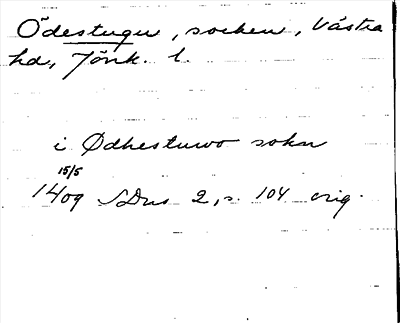 Ödestugu, socken, Västra
hd, Jönk. l.
i Ødhestuwo sokn
15/5
1409 SDns 2, s. 104 orig.